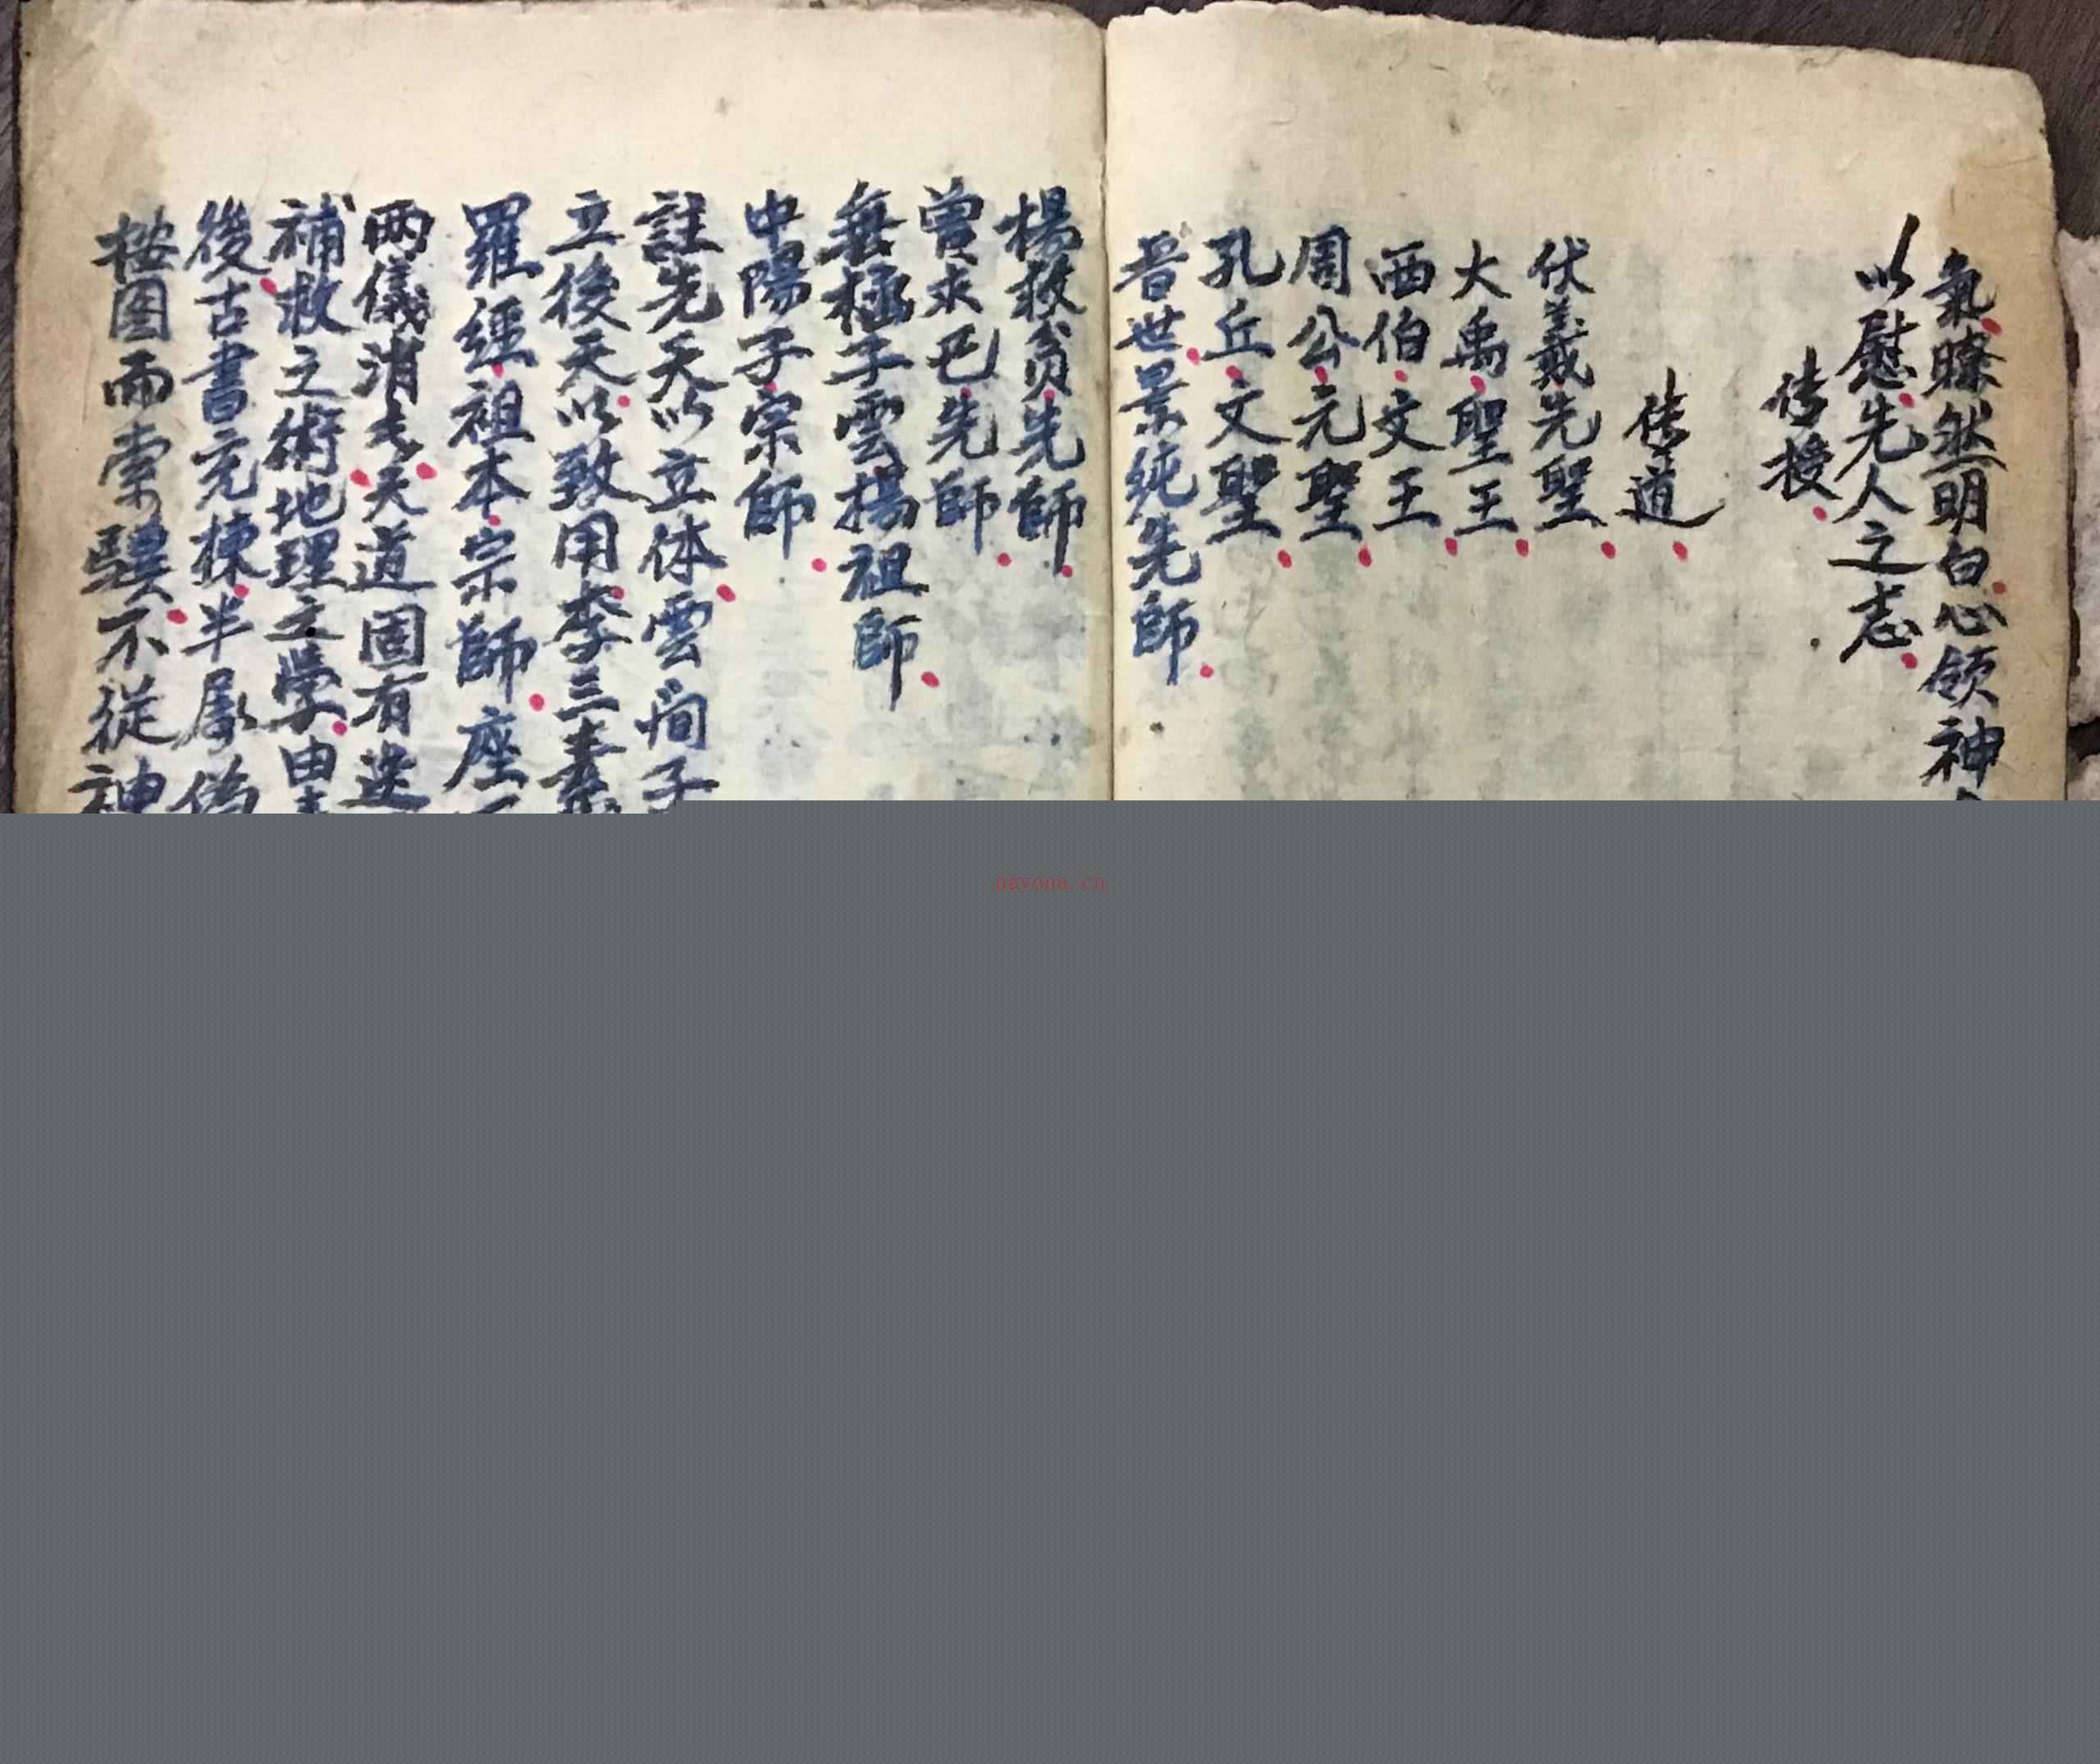 氣瞭然明白心领神
以慰先人之志
传授
传道
伏羲先聖
大禹聖王
西伯文王
周公元聖
孔丘文聖
晋世景純先師
楊救贫先師
曾求己先師
無極子雲揚祖師
中陽子宗師
註先天以立体雲间子
立後天以致用李三素
羅經祖本宗師座
两儀消長天道固有迭
補救之術地理之學由
後古書充棟半屬偽
按图而索驥不從神
nayona.cn